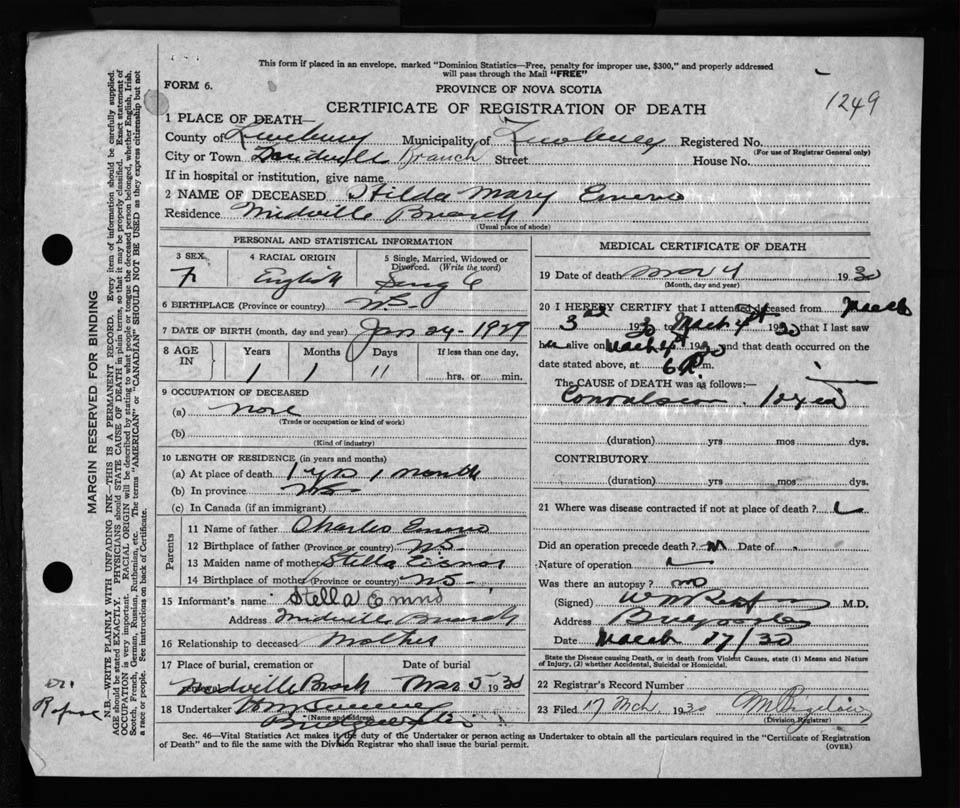 This form if placed in an envelope, marked "Dominion Statistics—Free, penalty for improper use, $300," and properly addressed
will pass through the Mail "FREE"
FORM 6.
PROVINCE OF NOVA SCOTIA
1249
CERTIFICATE OF REGISTRATION OF DEATH
1 PLACE OF DEATH—
County of Municipality of Registered No.
(For use of Registrar General only)
City or Town of Branch Street House No.
If in hospital or institution, give name
2 NAME OF DECEASED Hilda Mary
Residence Midville Branch
(Usual place of abode)
PERSONAL AND STATISTICAL INFORMATION
3 SEX F
4 RACIAL ORIGIN English
5 Single, Married, Widowed or Divorced. (Write the word) Single
6 BIRTHPLACE (Province or country) N.S.
7 DATE OF BIRTH (month, day and year) Jan 24 - 1929
8 AGE IN Years Months Days If less than one day,
1 1 11 hrs. or min.
9 OCCUPATION OF DECEASED
(a) none
(Trade or occupation or kind of work)
(b)
(Kind of industry)
10 LENGTH OF RESIDENCE (in years and months)
(a) At place of death 1 yr 1 month
(b) In province NS
(c) In Canada (if an immigrant)
Parents
11 Name of father Charles
12 Birthplace of father (Province or country) NS
13 Maiden name of mother Stella
14 Birthplace of mother (Province or country) NS
15 Informant's name Stella
Address Midville Branch
16 Relationship to deceased Mother
17 Place of burial, cremation or Date of burial
Midville Branch Mar 5 1930
18 Undertaker
(Name and address)
Bridgewater
MEDICAL CERTIFICATE OF DEATH
19 Date of death Mar 4 1930
(Month, day and year)
20 I HEREBY CERTIFY that I attended deceased from March
3rd 1930 to March 4th 1930 that I last saw
h alive on March 4th 1930 and that death occurred on the
date stated above, at 6 P. m.
The CAUSE OF DEATH was as follows:—
Convulsion
(duration) yrs mos dys.
CONTRIBUTORY
(duration) yrs mos dys.
21 Where was disease contracted if not at place of death?
Did an operation precede death? Date of
Nature of operation
Was there an autopsy? no
(Signed) M.D.
Address Bridgewater
Date March 17/30
State the Disease causing Death, or in death from Violent Causes, state (1) Means and Nature
of Injury, (2) whether Accidental, Suicidal or Homicidal.
22 Registrar's Record Number
23 Filed 17 Mch 1930
(Division Registrar)
Sec. 46—Vital Statistics Act makes it the duty of the Undertaker or person acting as Undertaker to obtain all the particulars required in the "Certificate of Registration
of Death" and to file the same with the Division Registrar who shall issue the burial permit.
(OVER)
MARGIN RESERVED FOR BINDING
N.B.—WRITE PLAINLY WITH UNFADING INK—THIS IS A PERMANENT RECORD. Every item of information should be carefully supplied.
AGE should be stated EXACTLY. PHYSICIANS should STATE CAUSE OF DEATH in plain terms, so that it may be properly classified. Exact statement of
OCCUPATION is very important. RACIAL ORIGIN will be described by stating to what people or tongue the deceased person belonged, whether English, Irish,
Scotch, French, German, Russian, Ruthenian, etc. The terms "AMERICAN" or "CANADIAN" SHOULD NOT BE USED as they express citizenship but not
a race or people. See instructions on back of Certificate.